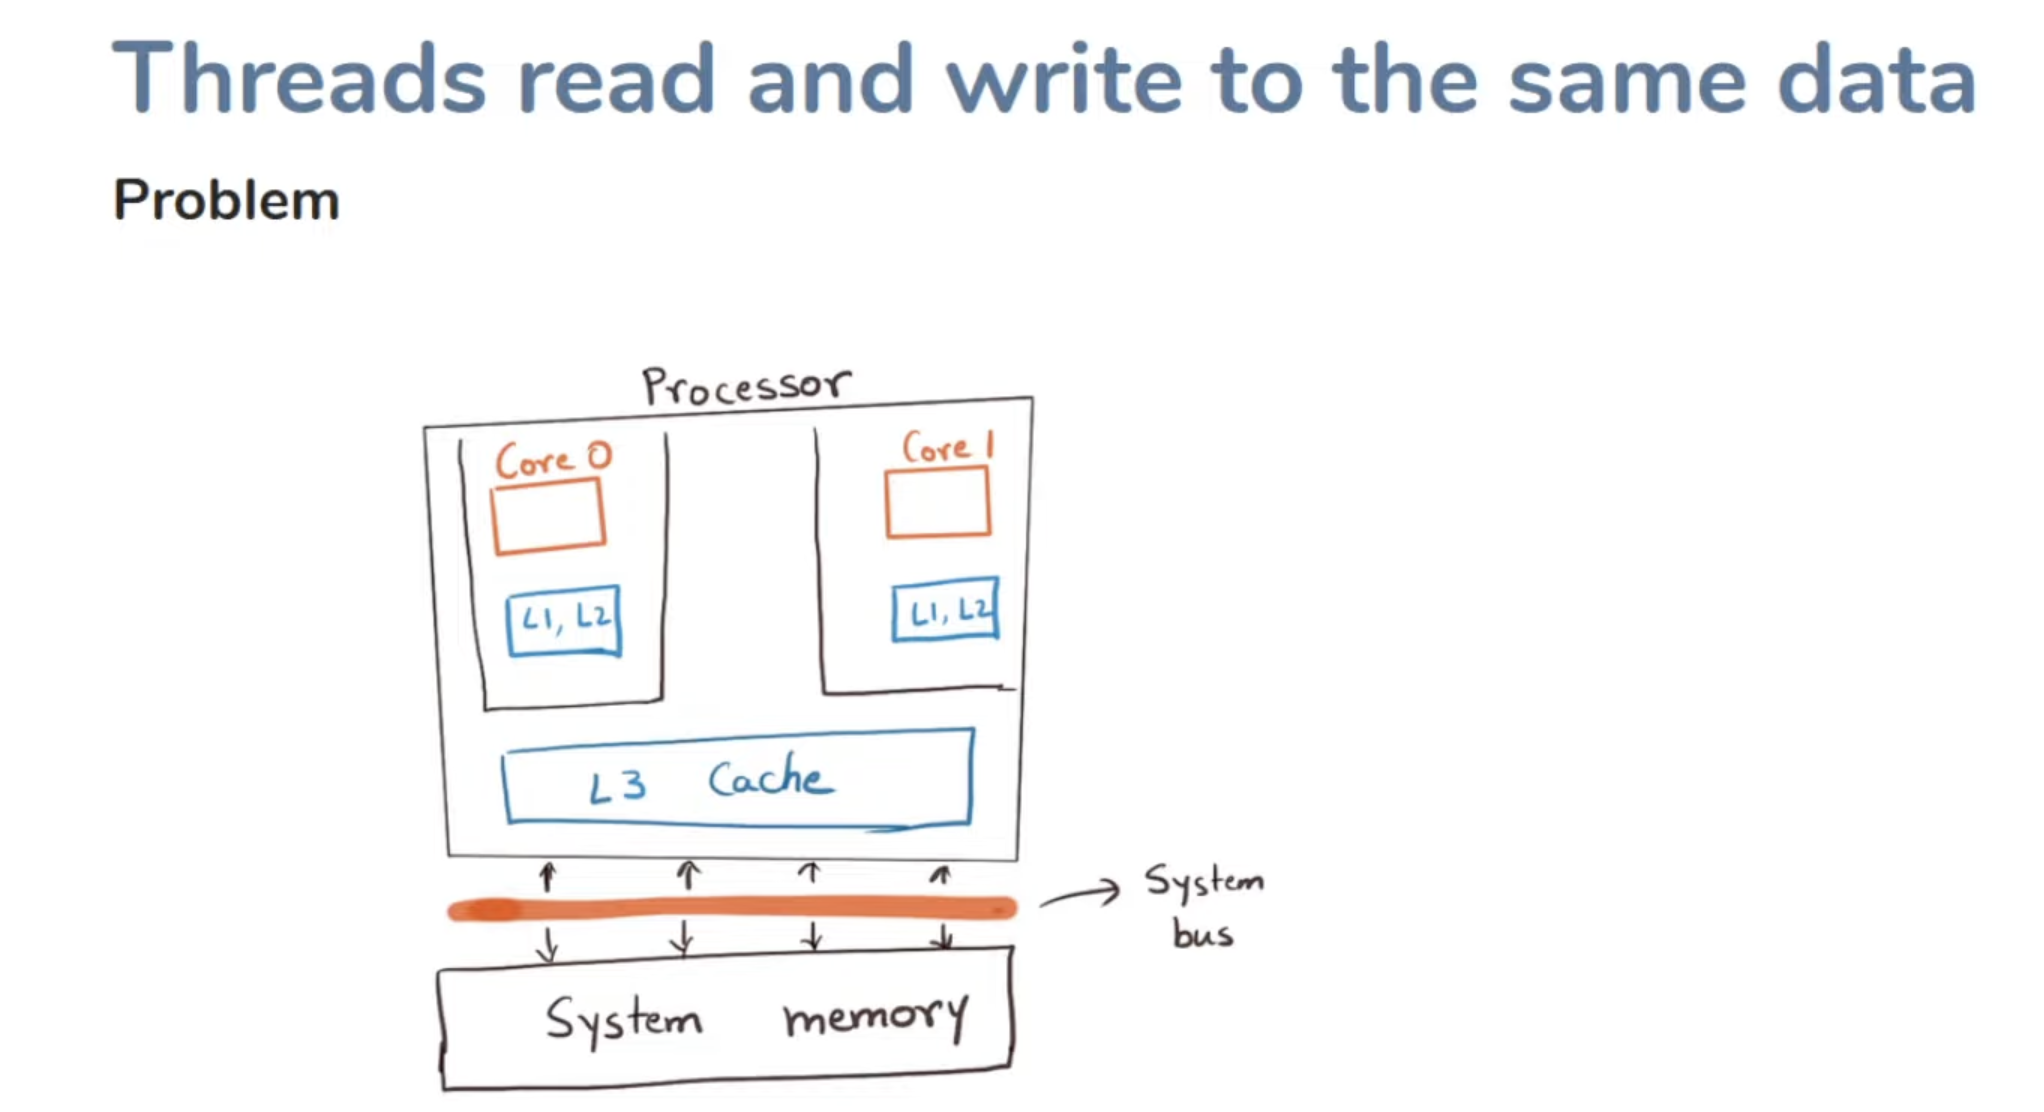 Threads read and write to the same data
Problem
Processor
Core 0
Core 1
L1, L2
L1, L2
L3 Cache
System
bus
System memory